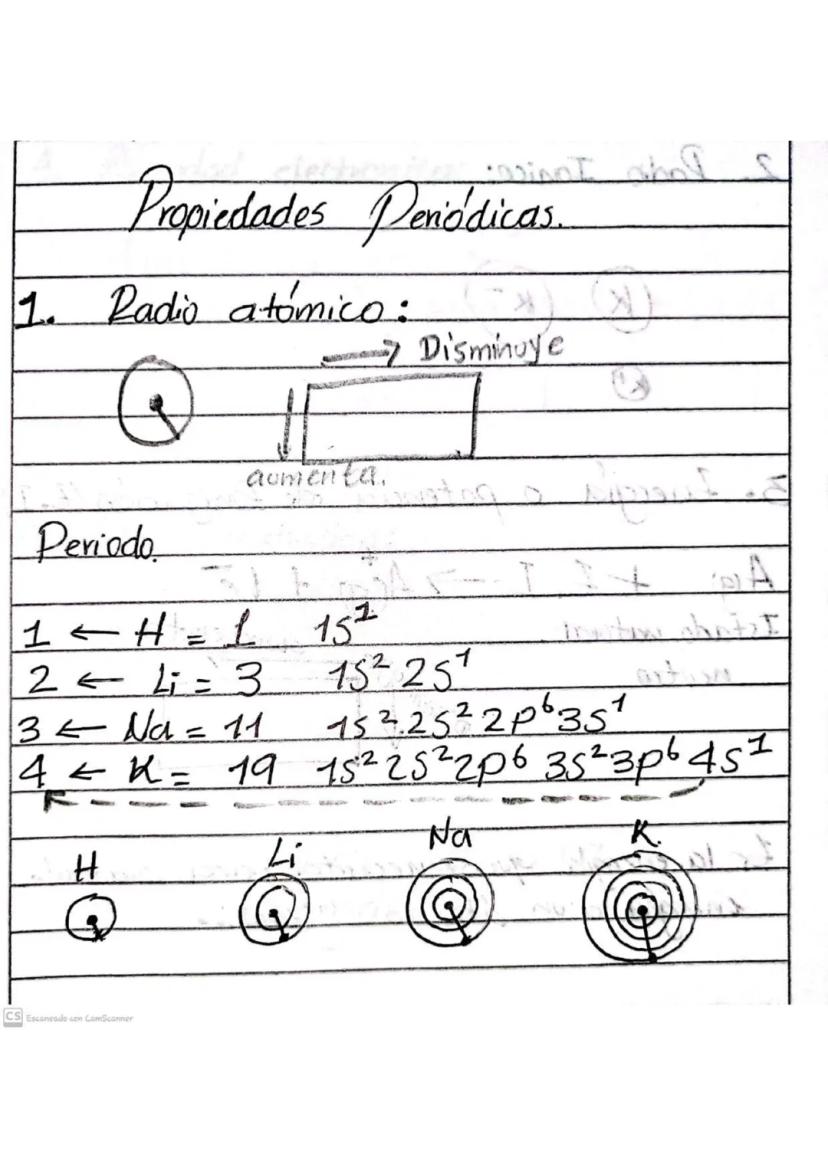 Propiedades Periódicas.
1. Radio atómico:
→ Disminuye
aumenta.
Periodo.
1 ← H = 1 1S¹
2 ← Li = 3 1S² 2S¹
3 ← Na = 11 1S² 2S² 2P⁶ 3S¹
4 ← K = 19 1S² 2S² 2p⁶ 3S² 3p⁶ 4S¹
H Li Na K.
CS Escaneado con CamScanner